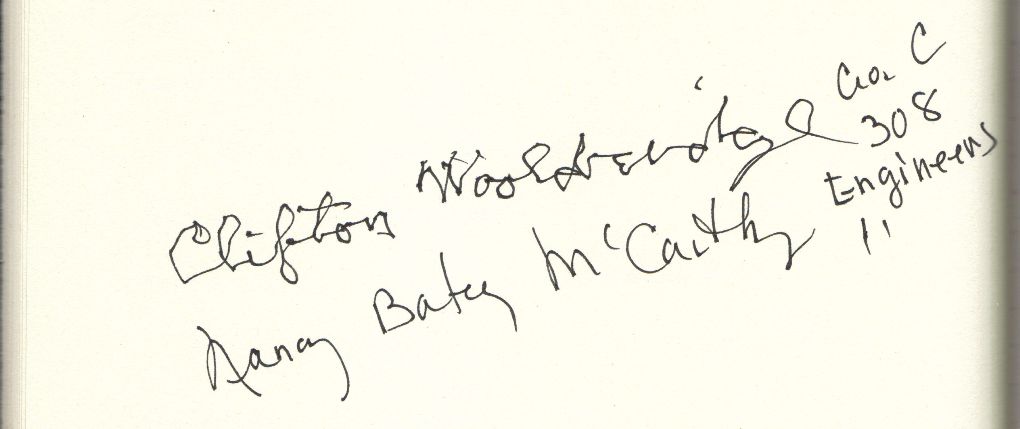 Clifton Wooldridge Co. C
308
Engineers
Nancy Batey McCarthy "